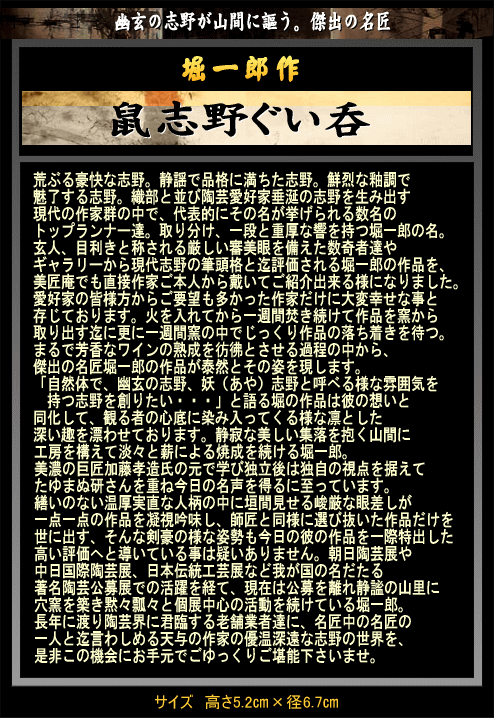 幽玄の志野が山間に謳う。傑出の名匠
堀一郎作
鼠志野ぐい呑
荒ぶる豪快な志野。静謡で品格に満ちた志野。鮮烈な釉調で
魅了する志野。織部と並び陶芸愛好家垂涎の志野を生み出す
現代の作家群の中で、代表的にその名が挙げられる数名の
トップランナー達。取り分け、一段と重厚な響を持つ堀一郎の名。
玄人、目利きと称される厳しい審美眼を備えた数奇者達や
ギャラリーから現代志野の筆頭格と迄評価される堀一郎の作品を、
美匠庵でも直接作家ご本人から戴いてご紹介出来る様になりました。
愛好家の皆様方からご要望も多かった作家だけに大変幸せな事と
存じております。火を入れてから一週間焚き続けて作品を窯から
取り出す迄に更に一週間窯の中でじっくり作品の落ち着きを待つ。
まるで芳香なワインの熟成を彷彿とさせる過程の中から、
傑出の名匠堀一郎の作品が泰然とその姿を現します。
「自然体で、幽玄の志野、妖（あや）志野と呼べる様な雰囲気を
持つ志野を創りたい・・・」と語る堀の作品は彼の想いと
同化して、観る者の心底に染み入ってくる様な凛とした
深い趣を漂わせております。静寂な美しい集落を抱く山間に
工房を構えて淡々と薪による焼成を続ける堀一郎。
美濃の巨匠加藤孝造氏の元で学び独立後は独自の視点を据えて
たゆまぬ研さんを重ね今日の名声を得るに至っています。
繕いのない温厚実直な人柄の中に垣間見せる峻厳な眼差しが
一点一点の作品を凝視吟味し、師匠と同様に選び抜いた作品だけを
世に出す、そんな剣豪の様な姿勢も今日の彼の作品を一際特出した
高い評価へと導いている事は疑いありません。朝日陶芸展や
中日国際陶芸展、日本伝統工芸展など我が国の名だたる
著名陶芸公募展での活躍を経て、現在は公募を離れ静謐の山里に
穴窯を築き黙々瓢々と個展中心の活動を続けている堀一郎。
長年に渡り陶芸界に君臨する老舗業者達に、名匠中の名匠の
一人と迄言わしめる天与の作家の優温深遠な志野の世界を、
是非この機会にお手元でごゆっくりご堪能下さいませ。
サイズ　高さ5.2cm×径6.7cm